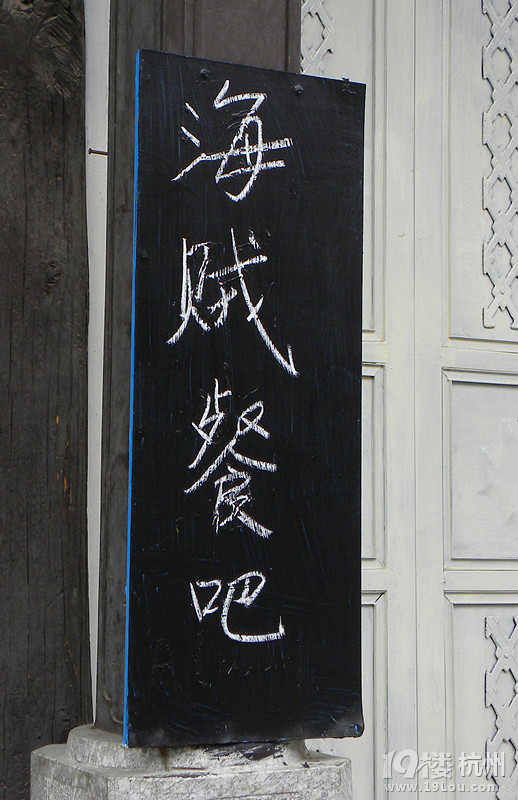 海贼餐吧
19楼 杭州
www.19lou.com